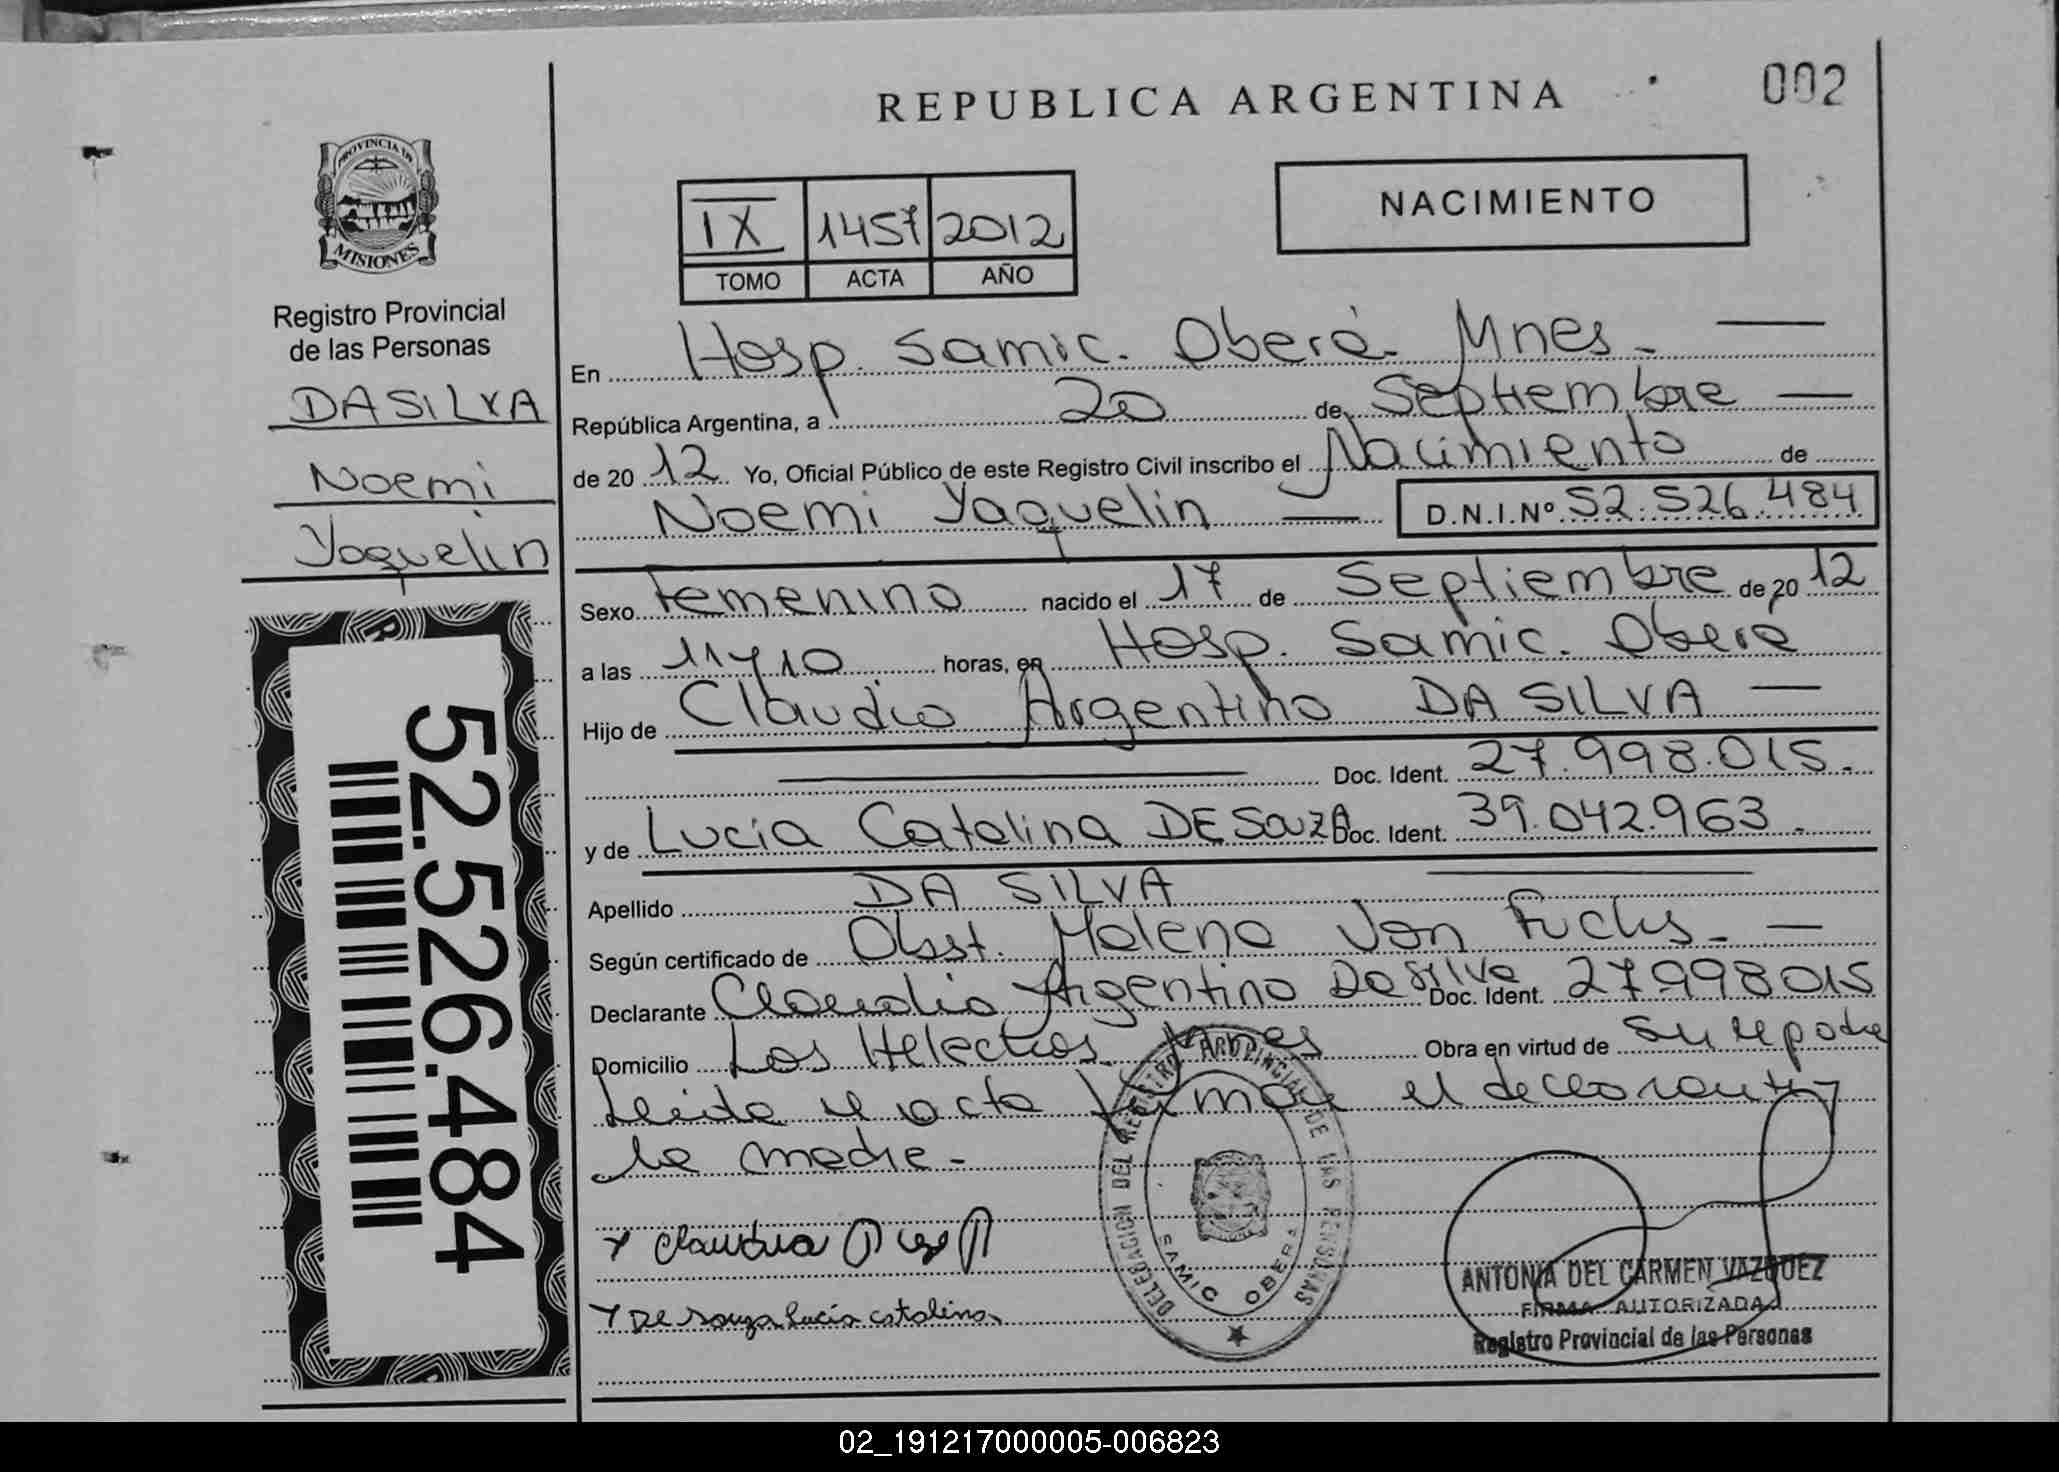 REPUBLICA ARGENTINA
002
PROVINCIA DE
MISIONES
Registro Provincial
de las Personas
DA SILVA
Noemi
Yaquelin
52.526.484
IX 1457 2012
TOMO ACTA AÑO
NACIMIENTO
En Hosp. Samic. Oberá. Mnes. —
República Argentina, a 20 de Septiembre —
de 20 12 Yo, Oficial Público de este Registro Civil inscribo el Nacimiento de
Noemi Yaquelin — D.N.I.Nº 52.526.484
Sexo Femenino nacido el 17 de Septiembre de 20 12
a las 11 y 10 horas, en Hosp. Samic. Oberá
Hijo de Claudio Argentino DA SILVA —
Doc. Ident. 27.998.015.
y de Lucia Catalina DE SOUZA Doc. Ident. 39.042.963.
Apellido DA SILVA
Según certificado de Obst. Malena Von Fuchs. —
Declarante Claudio Argentino Da Silva Doc. Ident. 27998015
Domicilio Los Helechos. Mnes Obra en virtud de
Leida el acta firman el declarante y
la madre.-
Claudio
De Souza Lucia Catalina
DELEGACION DEL REGISTRO PROVINCIAL DE LAS PERSONAS
SAMIC OBERA
ANTONIA DEL CARMEN VAZQUEZ
FIRMA AUTORIZADA
Registro Provincial de las Personas
02_191217000005-006823